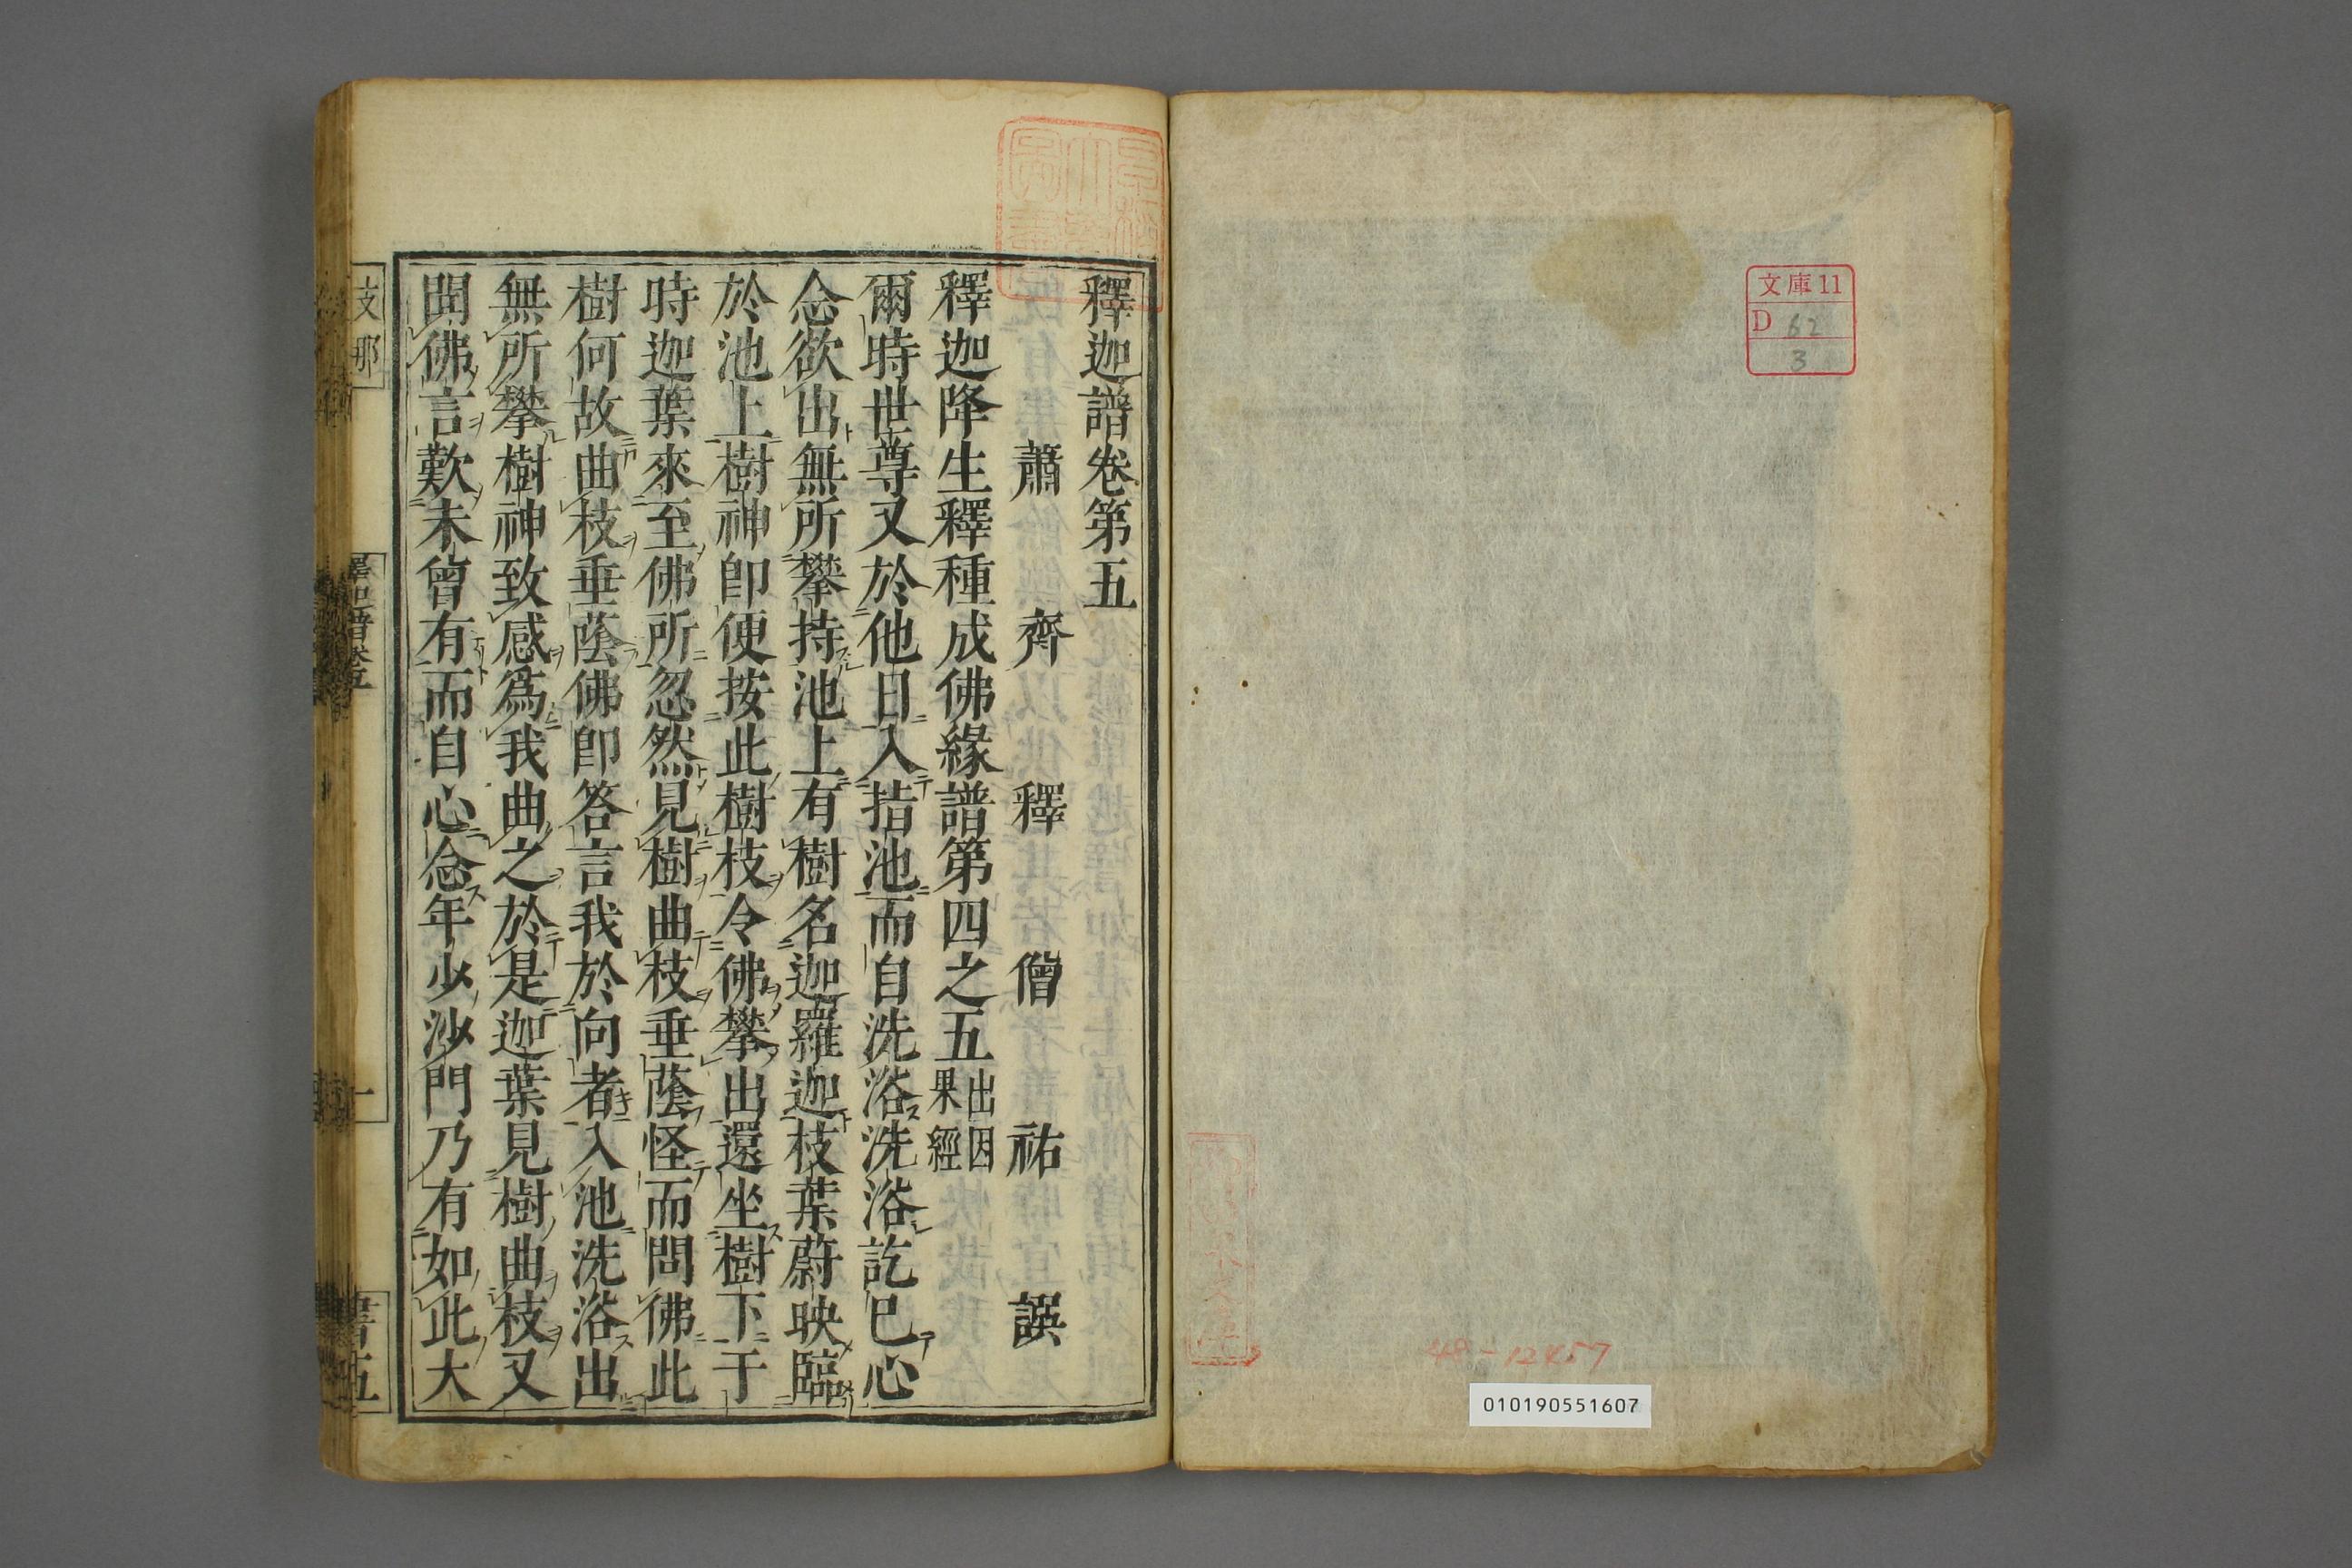 文庫11
D 62
3
48-12457
010190551607
釋迦譜卷第五
蕭齊釋僧祐譔
釋迦降生釋種成佛緣譜第四之五出因果經
爾時世尊又於他日入指池而自洗浴洗浴訖已心
念欲出無所攀持池上有樹名迦羅迦枝葉蔚映臨
於池上樹神即便按此樹枝令佛攀出還坐樹下于
時迦葉來至佛所忽然見樹曲枝垂蔭怪而問佛此
樹何故曲枝垂蔭佛即答言我於向者入池洗浴出
無所攀樹神致感爲我曲之於是迦葉見樹曲枝又
聞佛言歎未曾有而自心念年少沙門乃有如此大
支那
釋迦譜卷五
一
書五